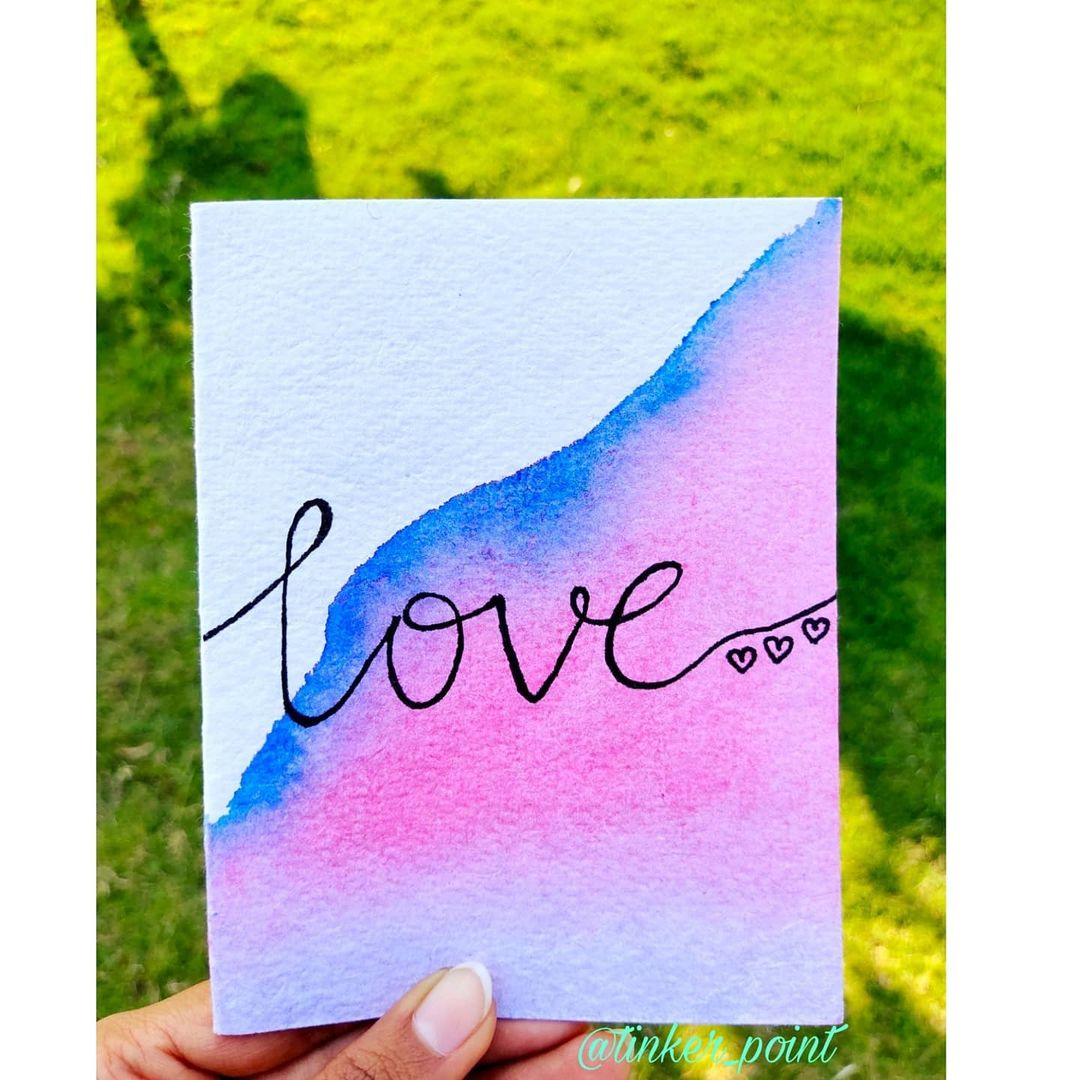 love
@tinker_point